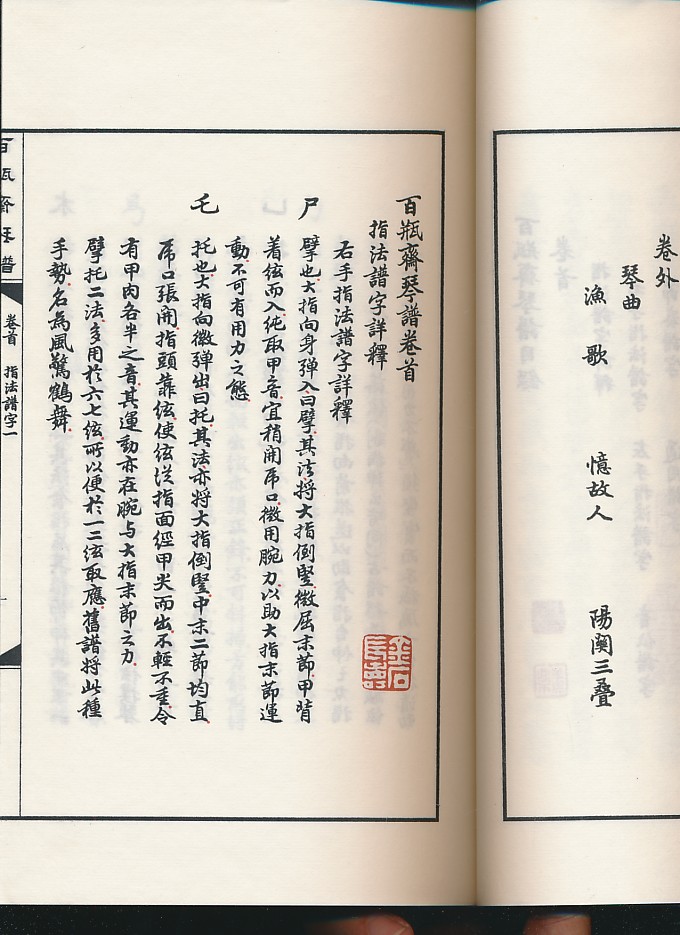 卷外
琴曲
漁歌　憶故人　陽関三疊
百瓶齋琴譜卷首
指法譜字詳釋
右手指法譜字詳釋
尸　擘也大指向身彈入曰擘其法將大指倒豎微屈末節甲背
着絃而入純取甲音宜稍開虎口微用腕力以助大指末節運
動不可有用力之態
乇　托也大指向徽彈出曰托其法亦將大指倒豎中末二節均直
虎口張開指頭靠絃使絃從指面經甲尖而出不輕不重令
有甲肉各半之音其運動亦在腕與大指末節之力
擘托二法多用於六七絃所以便於一二絃取應舊譜將此種
手勢名為風驚鶴舞
百瓶齋琴譜
卷首　指法譜字一
金石
長壽